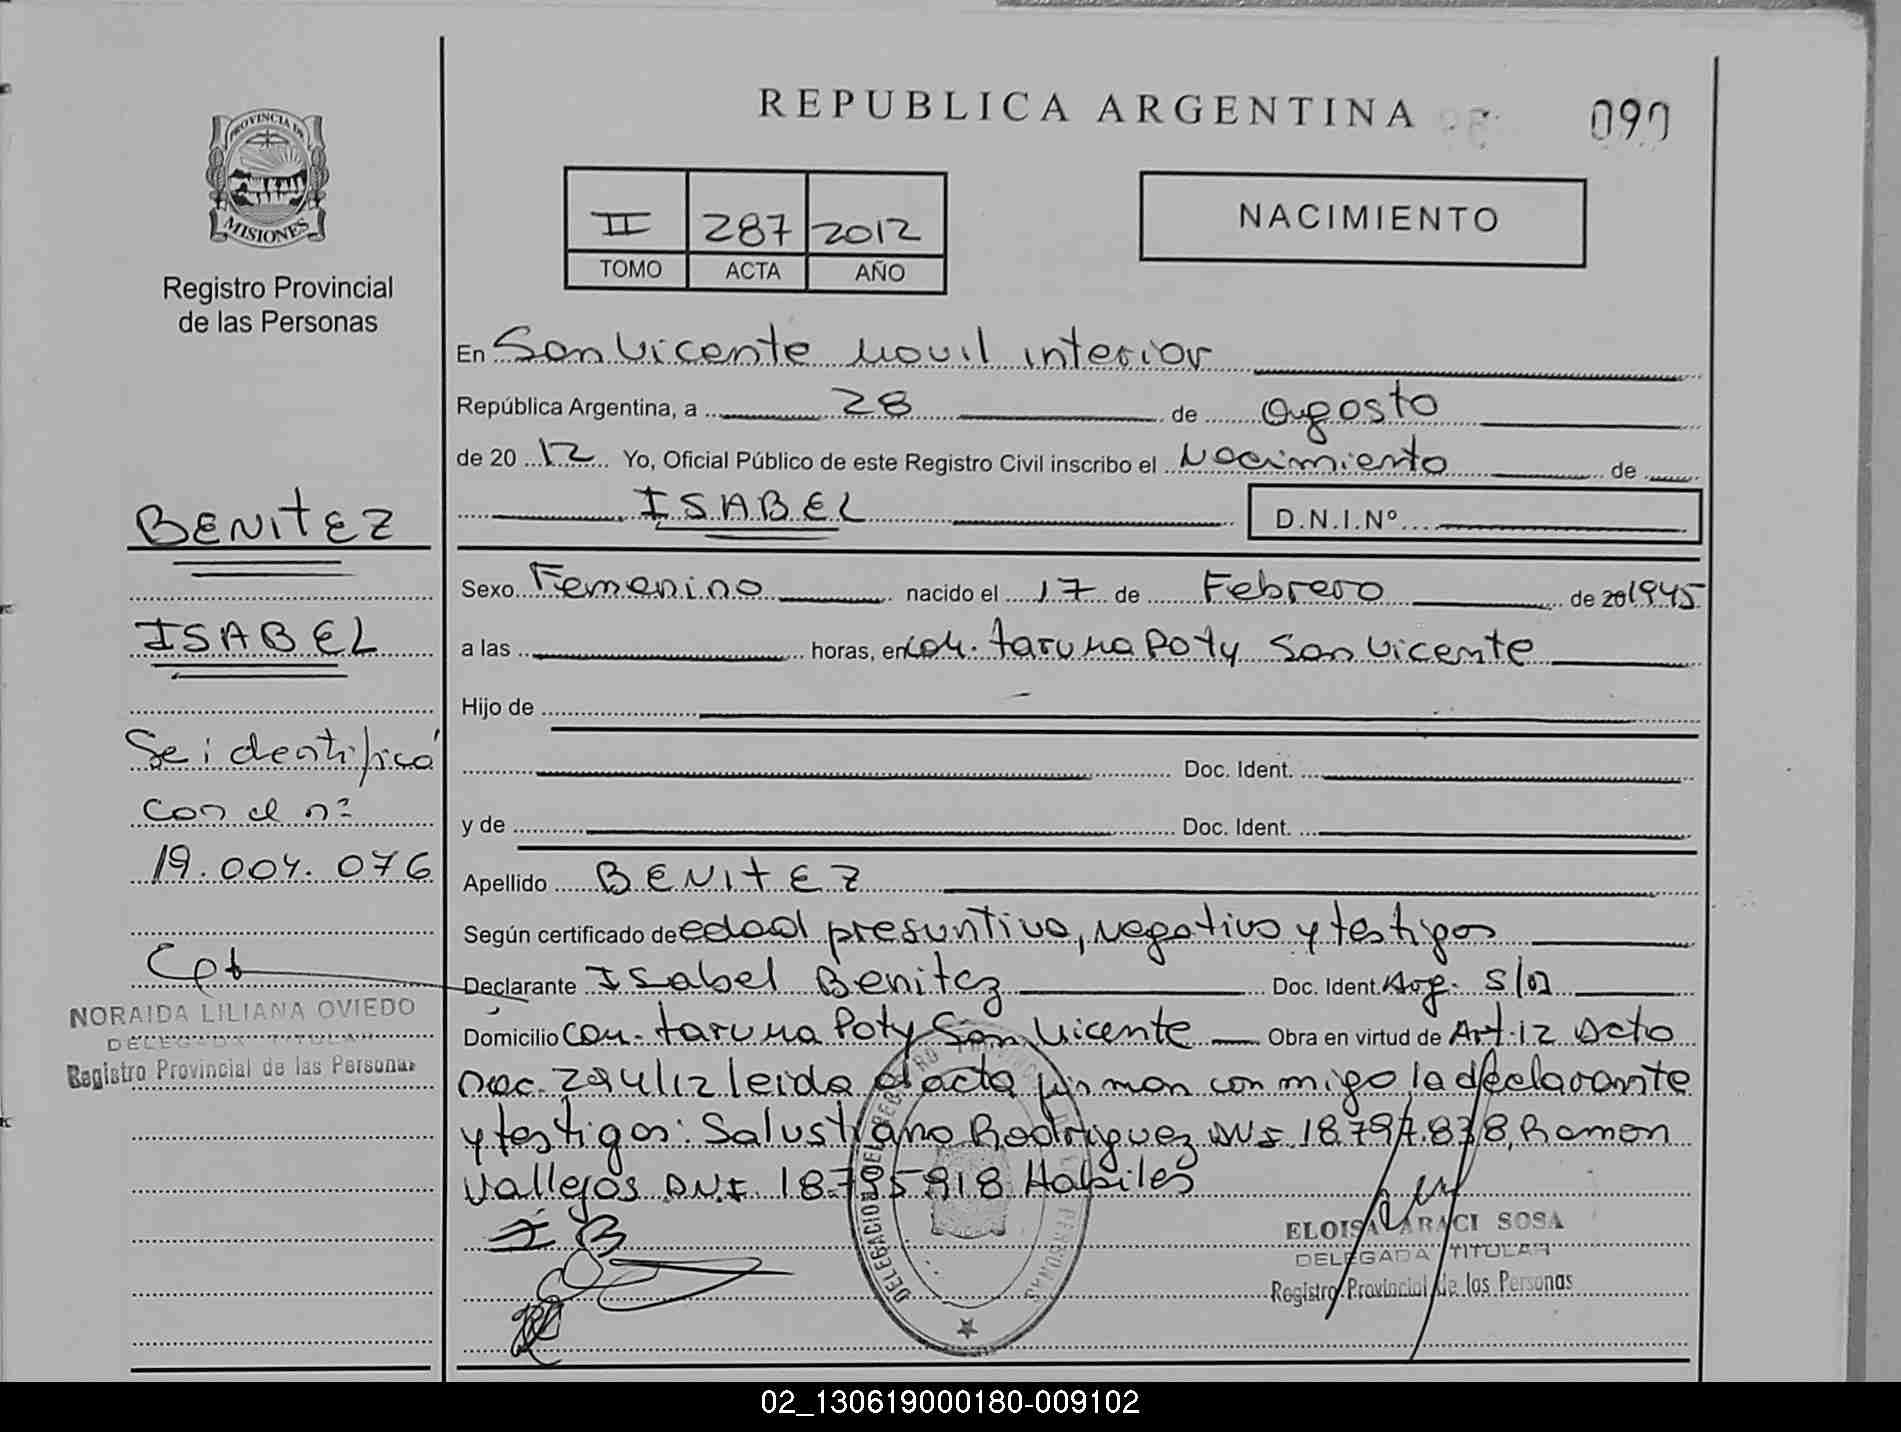 REPUBLICA ARGENTINA
090
PROVINCIA DE
MISIONES
Registro Provincial
de las Personas
II 287 2012
TOMO ACTA AÑO
NACIMIENTO
En San Vicente Movil interior
República Argentina, a 28 de agosto
de 20 12 Yo, Oficial Público de este Registro Civil inscribo el Nacimiento de
ISABEL D.N.I.Nº
BENITEZ
ISABEL
Se identificó
con el nº
19.004.076
NORAIDA LILIANA OVIEDO
DELEGADA TITULAR
Registro Provincial de las Personas
Sexo Femenino nacido el 17 de Febrero de 20 1945
a las horas, en Com. taruma Poty San Vicente
Hijo de
Doc. Ident.
y de Doc. Ident.
Apellido BENITEZ
Según certificado de edad presuntiva, negativo y testigos
Declarante Isabel Benitez Doc. Ident. Arg. S/D
Domicilio Com. taruma Poty San Vicente Obra en virtud de Art. 12 Dcto
Nac. 294/12 leida el acta firman conmigo la declarante
y testigos: Salustiano Rodriguez DNI 18.797.878, Ramon
Vallejos D.N.I. 18.795918 Habiles
I B
ELOISA ARACI SOSA
DELEGADA TITULAR
Registro Provincial de las Personas
02_130619000180-009102